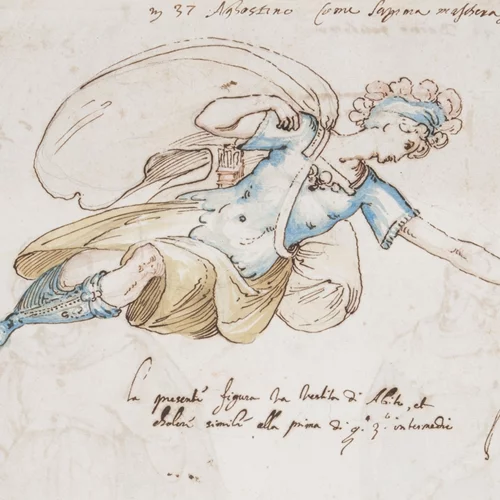 37 Agostino Come la prima maschera
la presente figura va vestita di Abiti, et
cholori simili alla prima di q.º 3.º intermedio